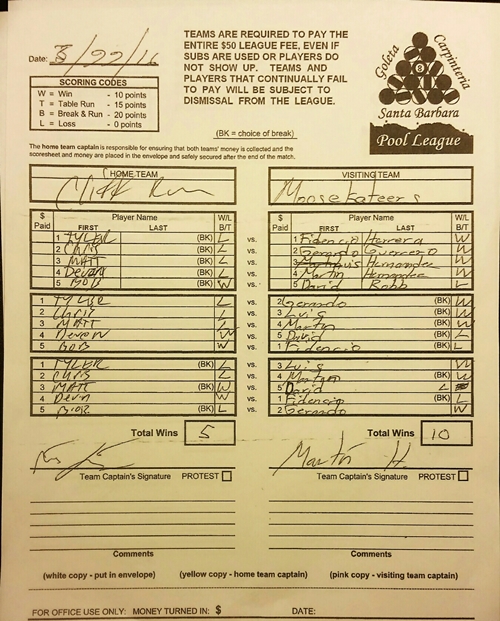 Date: 3/22/16
TEAMS ARE REQUIRED TO PAY THE
ENTIRE $50 LEAGUE FEE, EVEN IF
SUBS ARE USED OR PLAYERS DO
NOT SHOW UP. TEAMS AND
PLAYERS THAT CONTINUALLY FAIL
TO PAY WILL BE SUBJECT TO
DISMISSAL FROM THE LEAGUE.
SCORING CODES
W = Win - 10 points
T = Table Run - 15 points
B = Break & Run - 20 points
L = Loss - 0 points
(BK = choice of break)
Goleta Carpinteria
8
Santa Barbara
Pool League
The home team captain is responsible for ensuring that both teams' money is collected and the
scoresheet and money are placed in the envelope and safely secured after the end of the match.
HOME TEAM VISITING TEAM
Cliff Run Moosekateers
$ Paid Player Name FIRST LAST W/L B/T $ Paid Player Name FIRST LAST W/L B/T
1 TYLER (BK) L vs. 1 Fidencio Herrera W
2 CHRIS (BK) L vs. 2 Gerardo Guerrero W
3 MATT (BK) L vs. 3 Hernandez W
4 Devon (BK) L vs. 4 Martin Hernandez W
5 BOB (BK) W vs. 5 David Robb L
1 TYLER L vs. 2 Gerardo (BK) W
2 Chris L vs. 3 Luis (BK) W
3 MATT L vs. 4 Martin (BK) W
4 Devon W vs. 5 David (BK) L
5 BOB W vs. 1 Fidencio (BK) L
1 TYLER (BK) L vs. 3 Luis W
2 CHRIS L vs. 4 Martin (BK) W
3 MATT (BK) W vs. 5 David L
4 Devn W vs. 1 Fidencio (BK) L
5 (BK) L vs. 2 Gerardo W
Total Wins 5 Total Wins 10
Martin H.
Team Captain's Signature PROTEST Team Captain's Signature PROTEST
Comments Comments
(white copy - put in envelope) (yellow copy - home team captain) (pink copy - visiting team captain)
FOR OFFICE USE ONLY: MONEY TURNED IN: $ DATE: